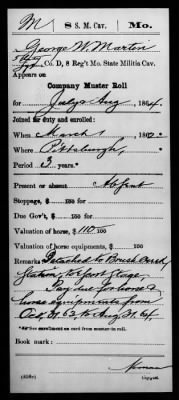 M 8 S. M. Cav. Mo.
George W. Martin
Co. D, 8 Reg't Mo. State Militia Cav.
Appears on
Company Muster Roll
for July & Aug, 1864.
Joined for duty and enrolled:
When March 1, 1862.
Where Pittsburgh,
Period 3 years.*
Present or absent Absent
Stoppage, $ 100 for
Due Gov't, $ 100 for
Valuation of horse, $ 110 100
Valuation of horse equipments, $ 100
Remarks Detached to Brush Creek
Station, to escort stage.
Pay due for horse &
horse equipments from
Oct. 31, 62 to Aug. 31, 64.
*See enrollment on card from muster-in roll.
Book mark:
(858c) Copyist.